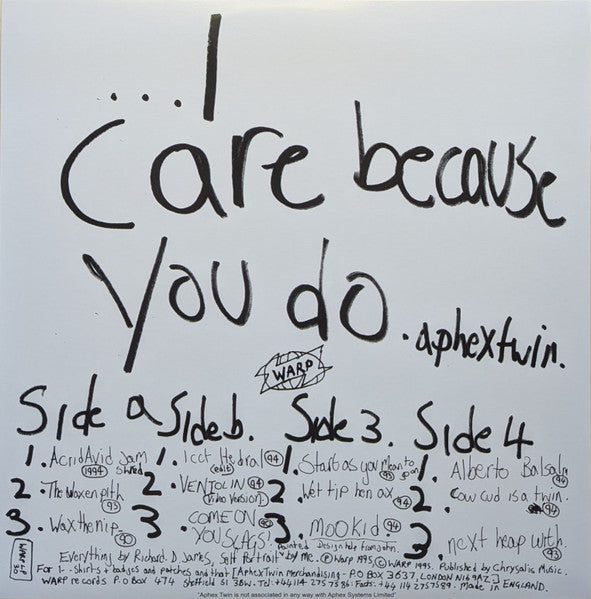 ...I
Care because
You do.
.aphextwin.
WARP
Side a
1. AcridAvid Jam Shred 1994
2. The Waxen pith 93
3. Wax the nip 90
Side b.
1. Icct Hedral 94 (edit)
2. VENTOLIN 94 (Video Version)
3. COME ON YOU SLAGS! 90
Side 3.
1. Start as you Mean to go on
2. Wet tip hen ax 94
3. MOOKid. 94
Side 4
1. Alberto Balsalm 94
2. Cow cud is a twin. 94
3. next heap with. 93
Everything by Richard. D James, Self Portrait Painted by Me. Design help from John. ℗ Warp 1995, © WARP 1995. Published by Chrysalis Music.
WARP LP 30
For T-Shirts + badges and patches and that [AphexTwin Merchandising - P.O BOX 3637, LONDON NI69AZ]
WARP records P.O Box 474 Sheffield S1 3BW. Tel: +44114 2757586. Facts: +44 114 2757589. Made in ENGLAND.
"Aphex Twin is not associated in any way with Aphex Systems Limited"